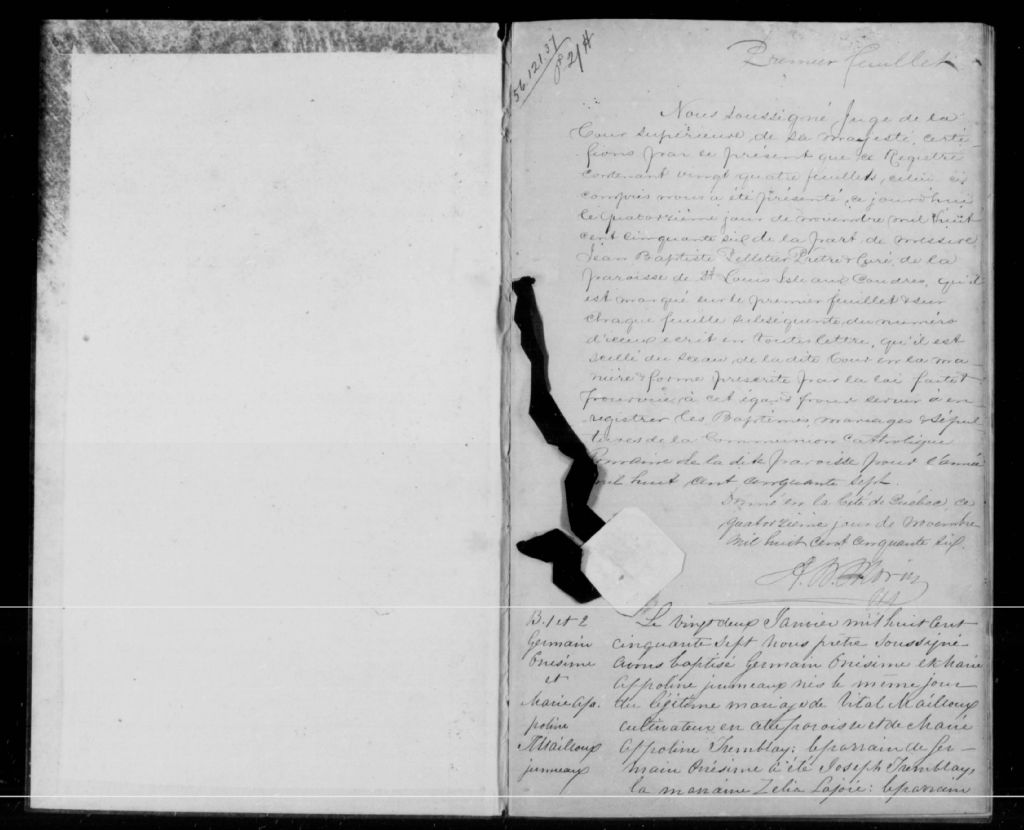 56.121.37
p. 21 A
Premier feuillet
Nous soussigné, Juge de la
Cour supérieure de sa majesté, certi-
fions par le présent que ce Registre
contenant vingt quatre feuillets, celui ci
compris nous a été présenté, ce jourd'hui
le quatorzième jour de novembre mil huit
cent cinquante six de la part de messire
Jean Baptiste Pelletier Prêtre & Curé de la
paroisse de St Louis Isle aux Coudres, qu'il
est marqué sur le premier feuillet & sur
chaque feuille subséquente du numéro
d'iceux ecrit en toutes lettre, qu'il est
scellé du sceau de la dite Cour en la ma
nière & forme prescrite par la loi faite &
pourvue à cet égard pour servir à en-
registrer les Baptêmes, mariages & sépul
tures de la Communion Catholique
Romaine de la dite paroisse pour l'année
mil huit cent cinquante sept.
Donné en la Cité de Québec, ce
quatorzieme jour de Novembre
mil huit cent cinquante six.
A. N. Morin
B. 1 et 2
Germain
Onésime
et
Marie Ap-
poline
Mailloux
jumeaux
Le vingt deux Janvier mil huit cent
cinquante sept nous prêtre soussigné
avons baptisé Germain Onésime et Marie
Appoline jumeaux nés le même jour
du légitime mariage de Vital Mailloux
cultivateur en cette paroisse et de Marie
Appoline Tremblay: le parrain de Ger-
main Onésime a été Joseph Tremblay,
la marraine Zélia Lajoie: le parrain